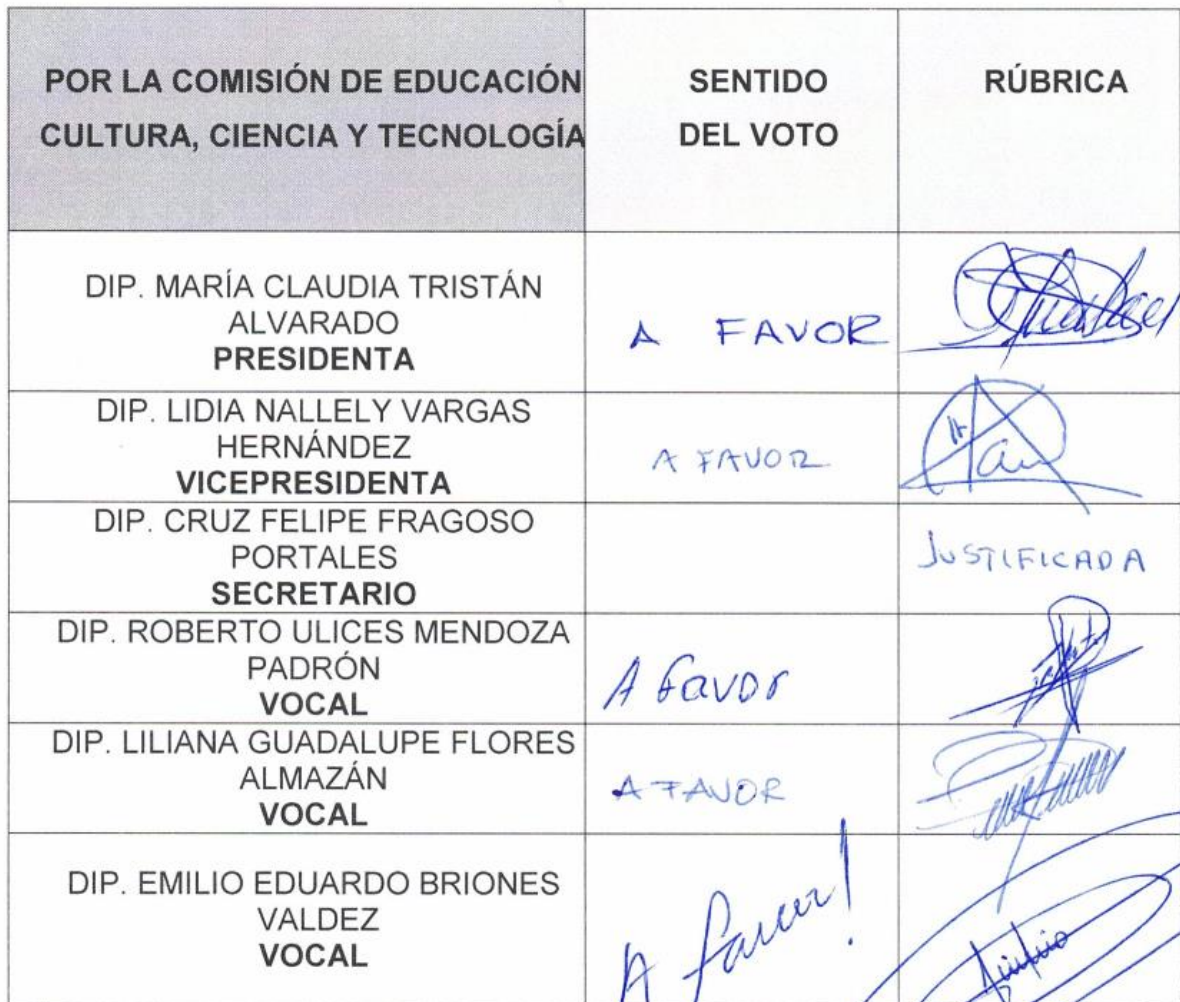 POR LA COMISIÓN DE EDUCACIÓN
CULTURA, CIENCIA Y TECNOLOGÍA
SENTIDO
DEL VOTO
RÚBRICA
DIP. MARÍA CLAUDIA TRISTÁN
ALVARADO
PRESIDENTA
A FAVOR
DIP. LIDIA NALLELY VARGAS
HERNÁNDEZ
VICEPRESIDENTA
A FAVOR
DIP. CRUZ FELIPE FRAGOSO
PORTALES
SECRETARIO
JUSTIFICADA
DIP. ROBERTO ULICES MENDOZA
PADRÓN
VOCAL
A Favor
DIP. LILIANA GUADALUPE FLORES
ALMAZÁN
VOCAL
A FAVOR
DIP. EMILIO EDUARDO BRIONES
VALDEZ
VOCAL
A favor!